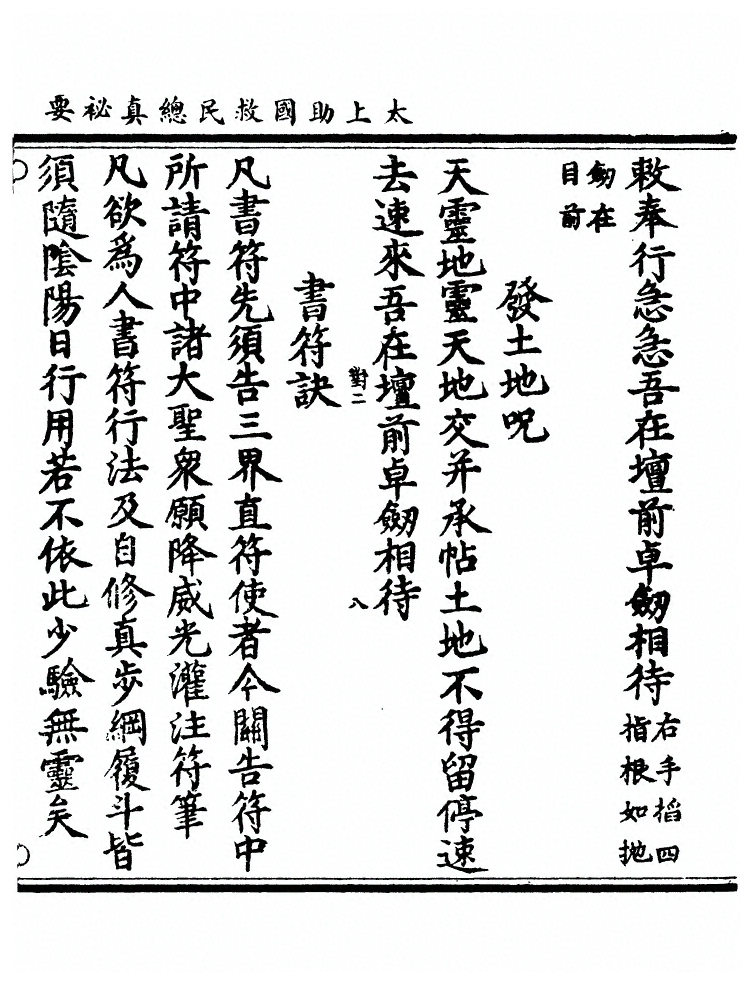 太上助國救民總真祕要
敕奉行急急吾在壇前卓劒相待右手搯四指根如抛
劒在目前
發土地呪
天靈地靈天地交并承帖土地不得留停速
去速來吾在壇前卓劒相待
對二
八
書符訣
凡書符先須告三界直符使者今關告符中
所請符中諸大聖衆願降威光灌注符筆
凡欲爲人書符行法及自修真步綱履斗皆
須隨陰陽日行用若不依此少驗無靈矣